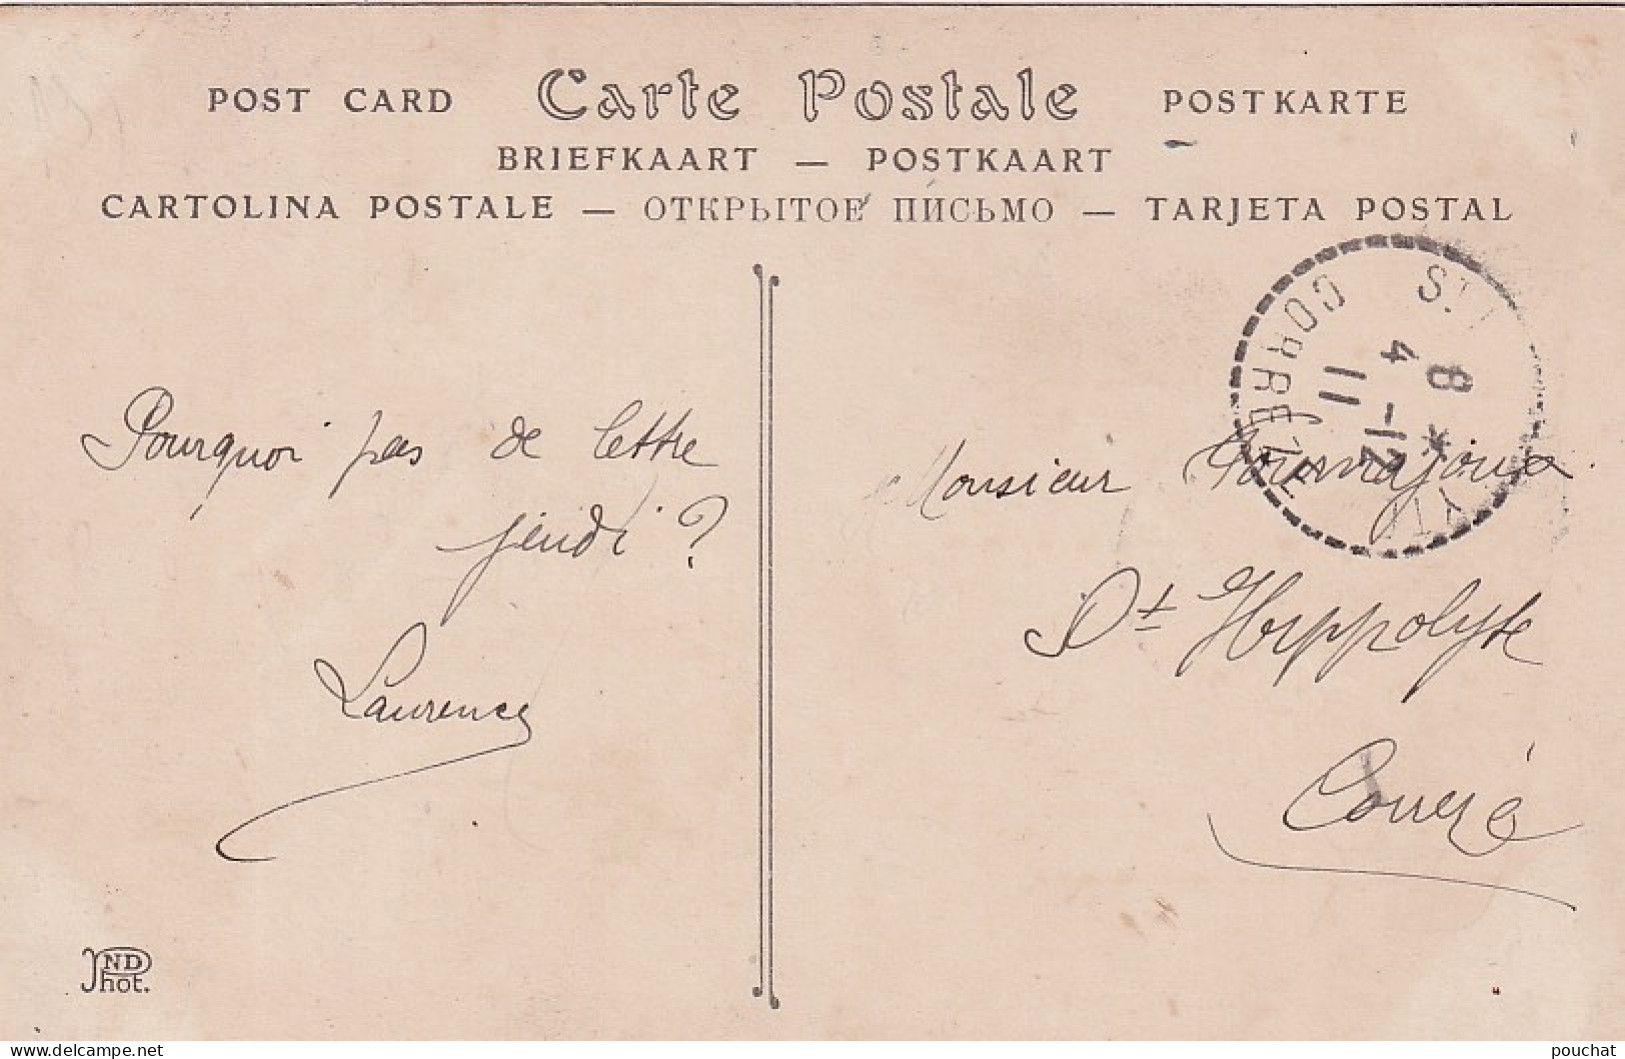 POST CARD Carte Postale POSTKARTE
BRIEFKAART — POSTKAART
CARTOLINA POSTALE — ОТКРЫТОЕ ПИСЬМО — TARJETA POSTAL
CORRÈZE
8 *
4 -12
11
Pourquoi pas de lettre
jeudi ?
Laurence
Monsieur
St Hippolyte
Corrèze
ND
Phot.
www.delcampe.net
pouchat